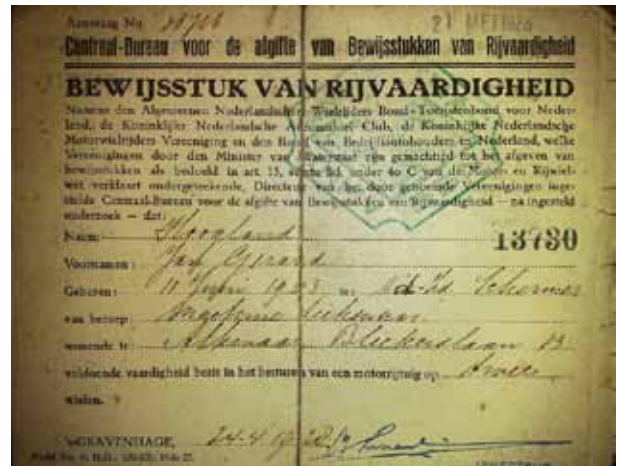 Aanvraag No. 
21 MEI 1928
Centraal-Bureau voor de afgifte van Bewijsstukken van Rijvaardigheid
BEWIJSSTUK VAN RIJVAARDIGHEID
Namens den Algemeenen Nederlandschen Wielrijders Bond - Toeristenbond voor Neder-
land, de Koninklijke Nederlandsche Automobiel Club, de Koninklijke Nederlandsche
Motorwielrijders Vereeniging en den Bond van Bedrijfsautohouders in Nederland, welke
Vereenigingen door den Minister van Waterstaat zijn gemachtigd tot het afgeven van
bewijsstukken als bedoeld in art. 15, eerste lid, onder 4o C van de Motor- en Rijwiel-
wet, verklaart ondergeteekende, Directeur van het door genoemde Vereenigingen inge-
stelde Centraal-Bureau voor de afgifte van Bewijsstukken van Rijvaardigheid — na ingesteld
onderzoek — dat:
Naam: Hoogland 13730
Voornamen: Jan Gerard
Geboren: 11 Juni 1903 te: Schermer
van beroep:
wonende te: Alkmaar 13
voldoende vaardigheid bezit in het besturen van een motorrijtuig op twee
wielen.
's-GRAVENHAGE, 24-4-1928